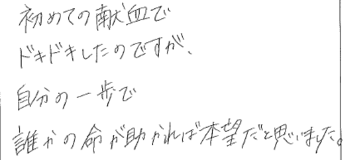 初めての献血で
ドキドキしたのですが、
自分の一歩で
誰かの命が助かれば本望だと思いました。